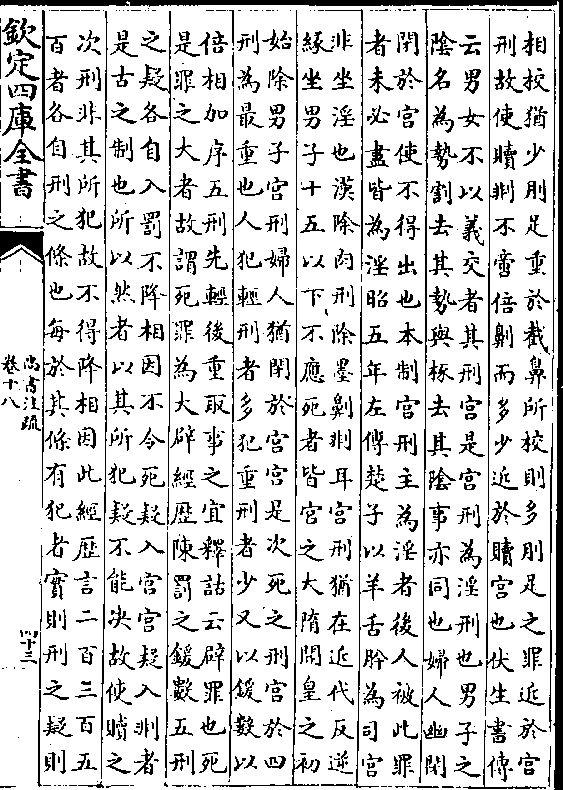 相挍猶少刖足重於截鼻所校則多刖足之罪近於宮
刑故使贖剕不啻倍劓而多少近於贖宮也伏生書傳
云男女不以義交者其刑宮是宮刑為淫刑也男子之
陰名為勢割去其勢與椓去其陰事亦同也婦人幽閉
閉於宮使不得出也本制宮刑主為淫者後人被此罪
者未必盡皆為淫昭五年左傳楚子以羊舌肸為司宮
非坐淫也漢除肉刑除墨劓剕耳宮刑猶在近代反逆
緣坐男子十五以下不應死者皆宮之大隋開皇之初
始除男子宮刑婦人猶閉於宮宮是次死之刑宮於四
刑為最重也人犯輕刑者多犯重刑者少又以鍰數以
倍相加序五刑先輕後重取事之宜釋詁云辟罪也死
是罪之大者故謂死罪為大辟經歷陳罰之鍰數五刑
之疑各自入罰不降相因不令死疑入宮宮疑入剕者
是古之制也所以然者以其所犯疑不能決故使贖之
次刑非其所犯故不得降相因此經歷言二百三百五
百者各自刑之條也每於其條有犯者實則刑之疑則
欽定四庫全書
尚書注疏
卷十八
四十三